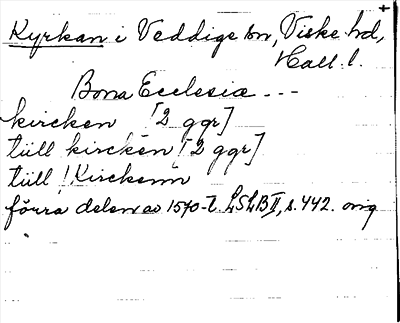 +
Kyrkan i Veddige sn, Viske hd,
Hall. l.
Bona Ecclesia ---
kircken [2 ggr]
tüll kircken [2 ggr]
tüll ! Kirckenn
förra delen av 1570-t. LSLB II, s. 442. orig